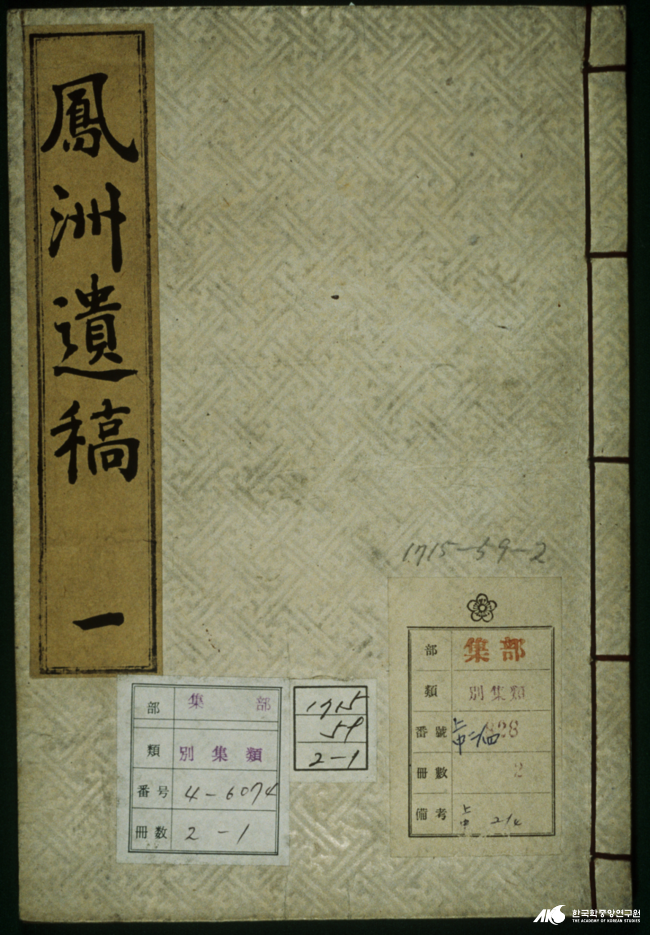 鳳洲遺稿 一
1715-59-2
部 集部
類 別集類
番号 4-6074
冊數 2-1
1715
59
2-1
部 集部
類 別集類
番號 828
冊數 2
備考
한국학중앙연구원
THE ACADEMY OF KOREAN STUDIES